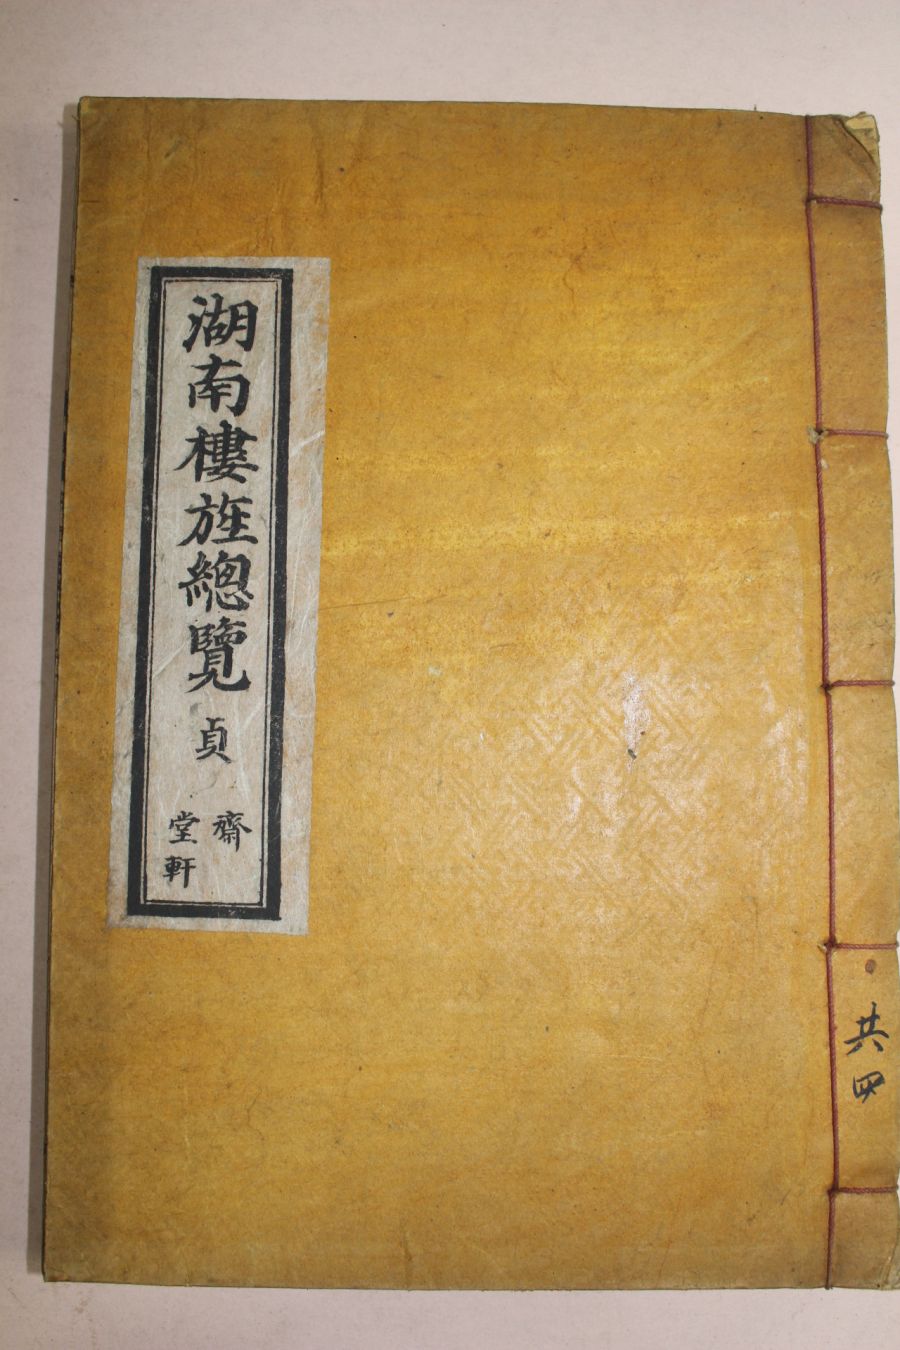 湖南樓㫌總覽 貞
齋
堂軒
共四